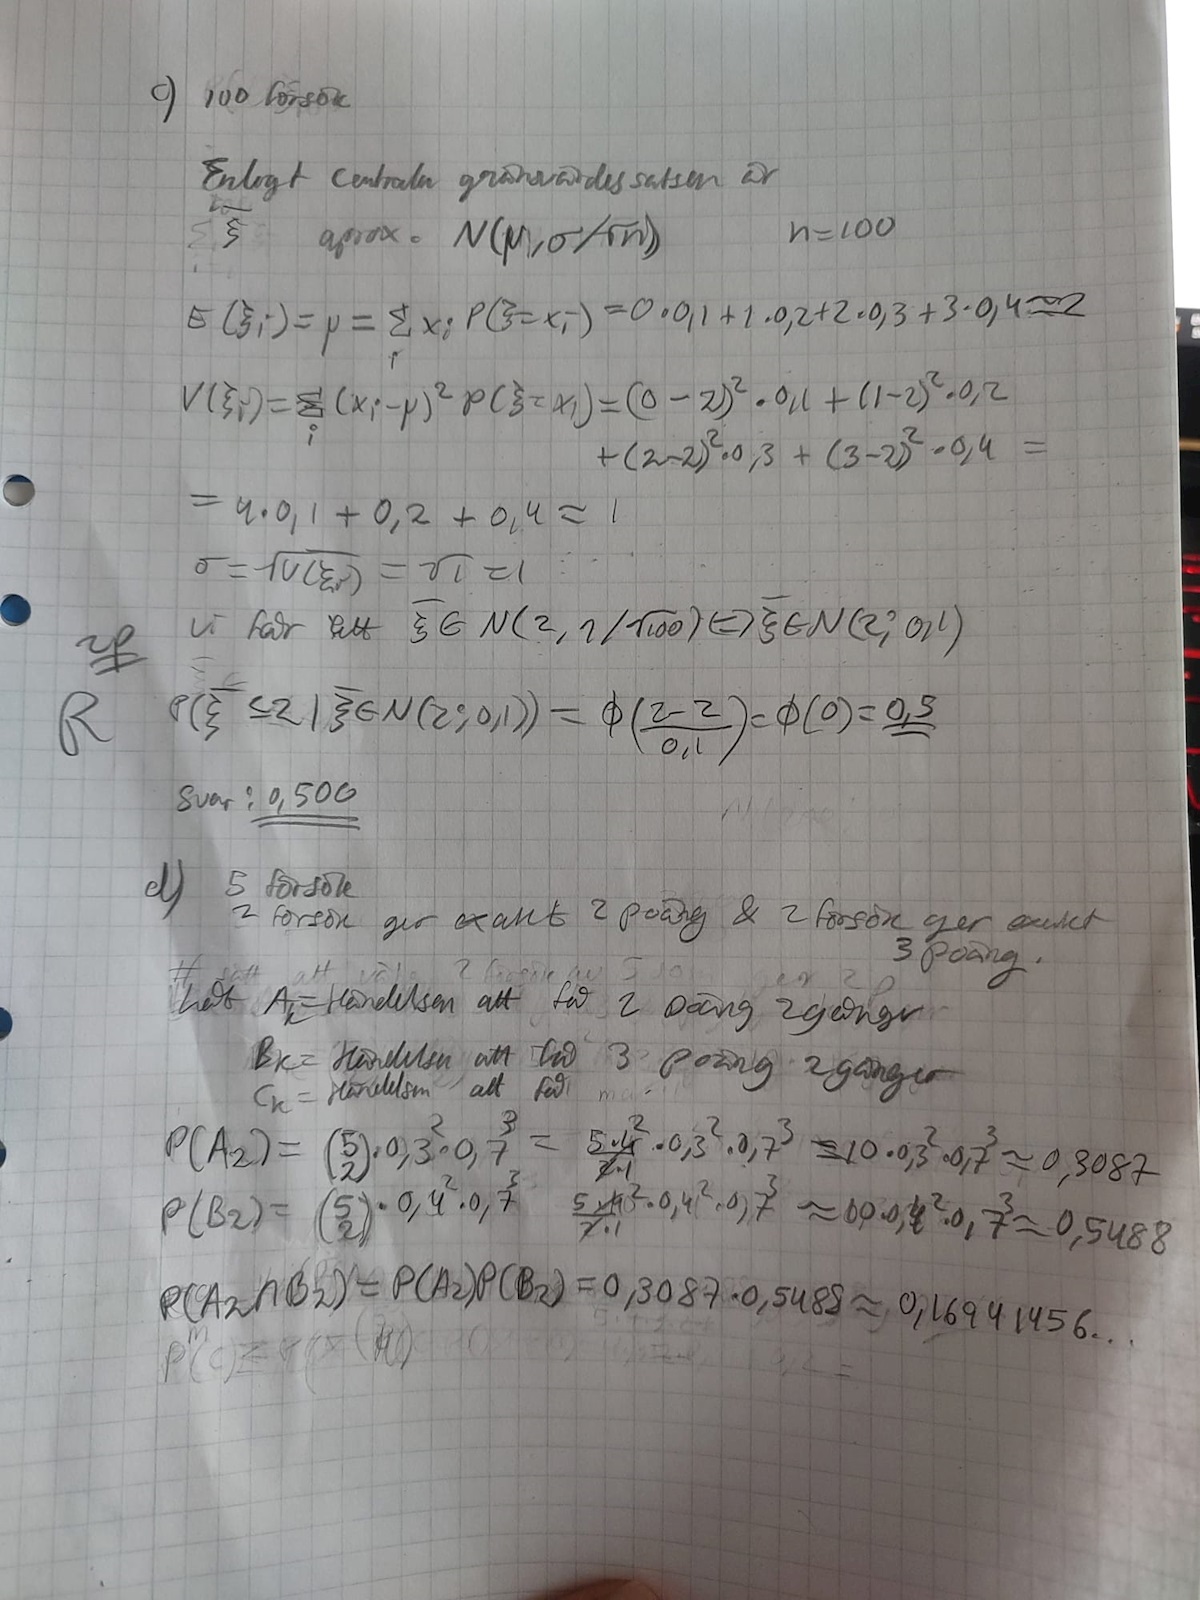 c) 100 försök
Enlogt centrala gränsvärdessatsen är
ξ̅ aprox. N(μ, σ/√n) n=100
E(ξi)= μ = Σi xi P(ξ=xi) = 0·0,1+1·0,2+2·0,3+3·0,4=2
V(ξi)=Σi (xi-μ)² P(ξ=xi)=(0-2)²·0,1+(1-2)²·0,2
+(2-2)²·0,3+(3-2)²·0,4 =
= 4·0,1+0,2+0,4=1
σ=√V(ξi) = √1=1
vi får att ξ̅∈N(2, 1/√100)⇔ξ̅∈N(2; 0,1)
R P(ξ̅≤2|ξ̅∈N(2;0,1))= φ((2-2)/0,1)=φ(0)=0,5
Svar: 0,500
d) 5 försök
2 försök ger exakt 2 poäng & 2 försök ger exakt
3 poäng.
Låt Ak=Händelsen att få 2 poäng 2 gånger
Bk= Händelsen att få 3 poäng 2 gånger
Ck= Händelsen att få
P(A2)= (5 2)·0,3²·0,7³ = 5·4/2·1·0,3²·0,7³ =10·0,3²·0,7³≈0,3087
P(B2)= (5 2)·0,4²·0,7³ 5·4/2·1·0,4²·0,7³ ≈10·0,4²·0,7³≈0,5488
P(A2∩B2)=P(A2)P(B2)=0,3087·0,5488≈0,16941456...